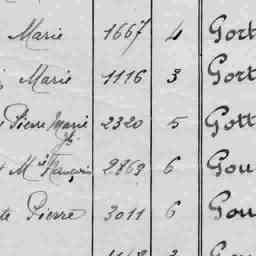 Marie 1667 4 Gort
Marie 1116 3 Gort
Pierre Marie 2320 5 Gott
M 2863 6 Gou
Pierre 3011 6 Gou